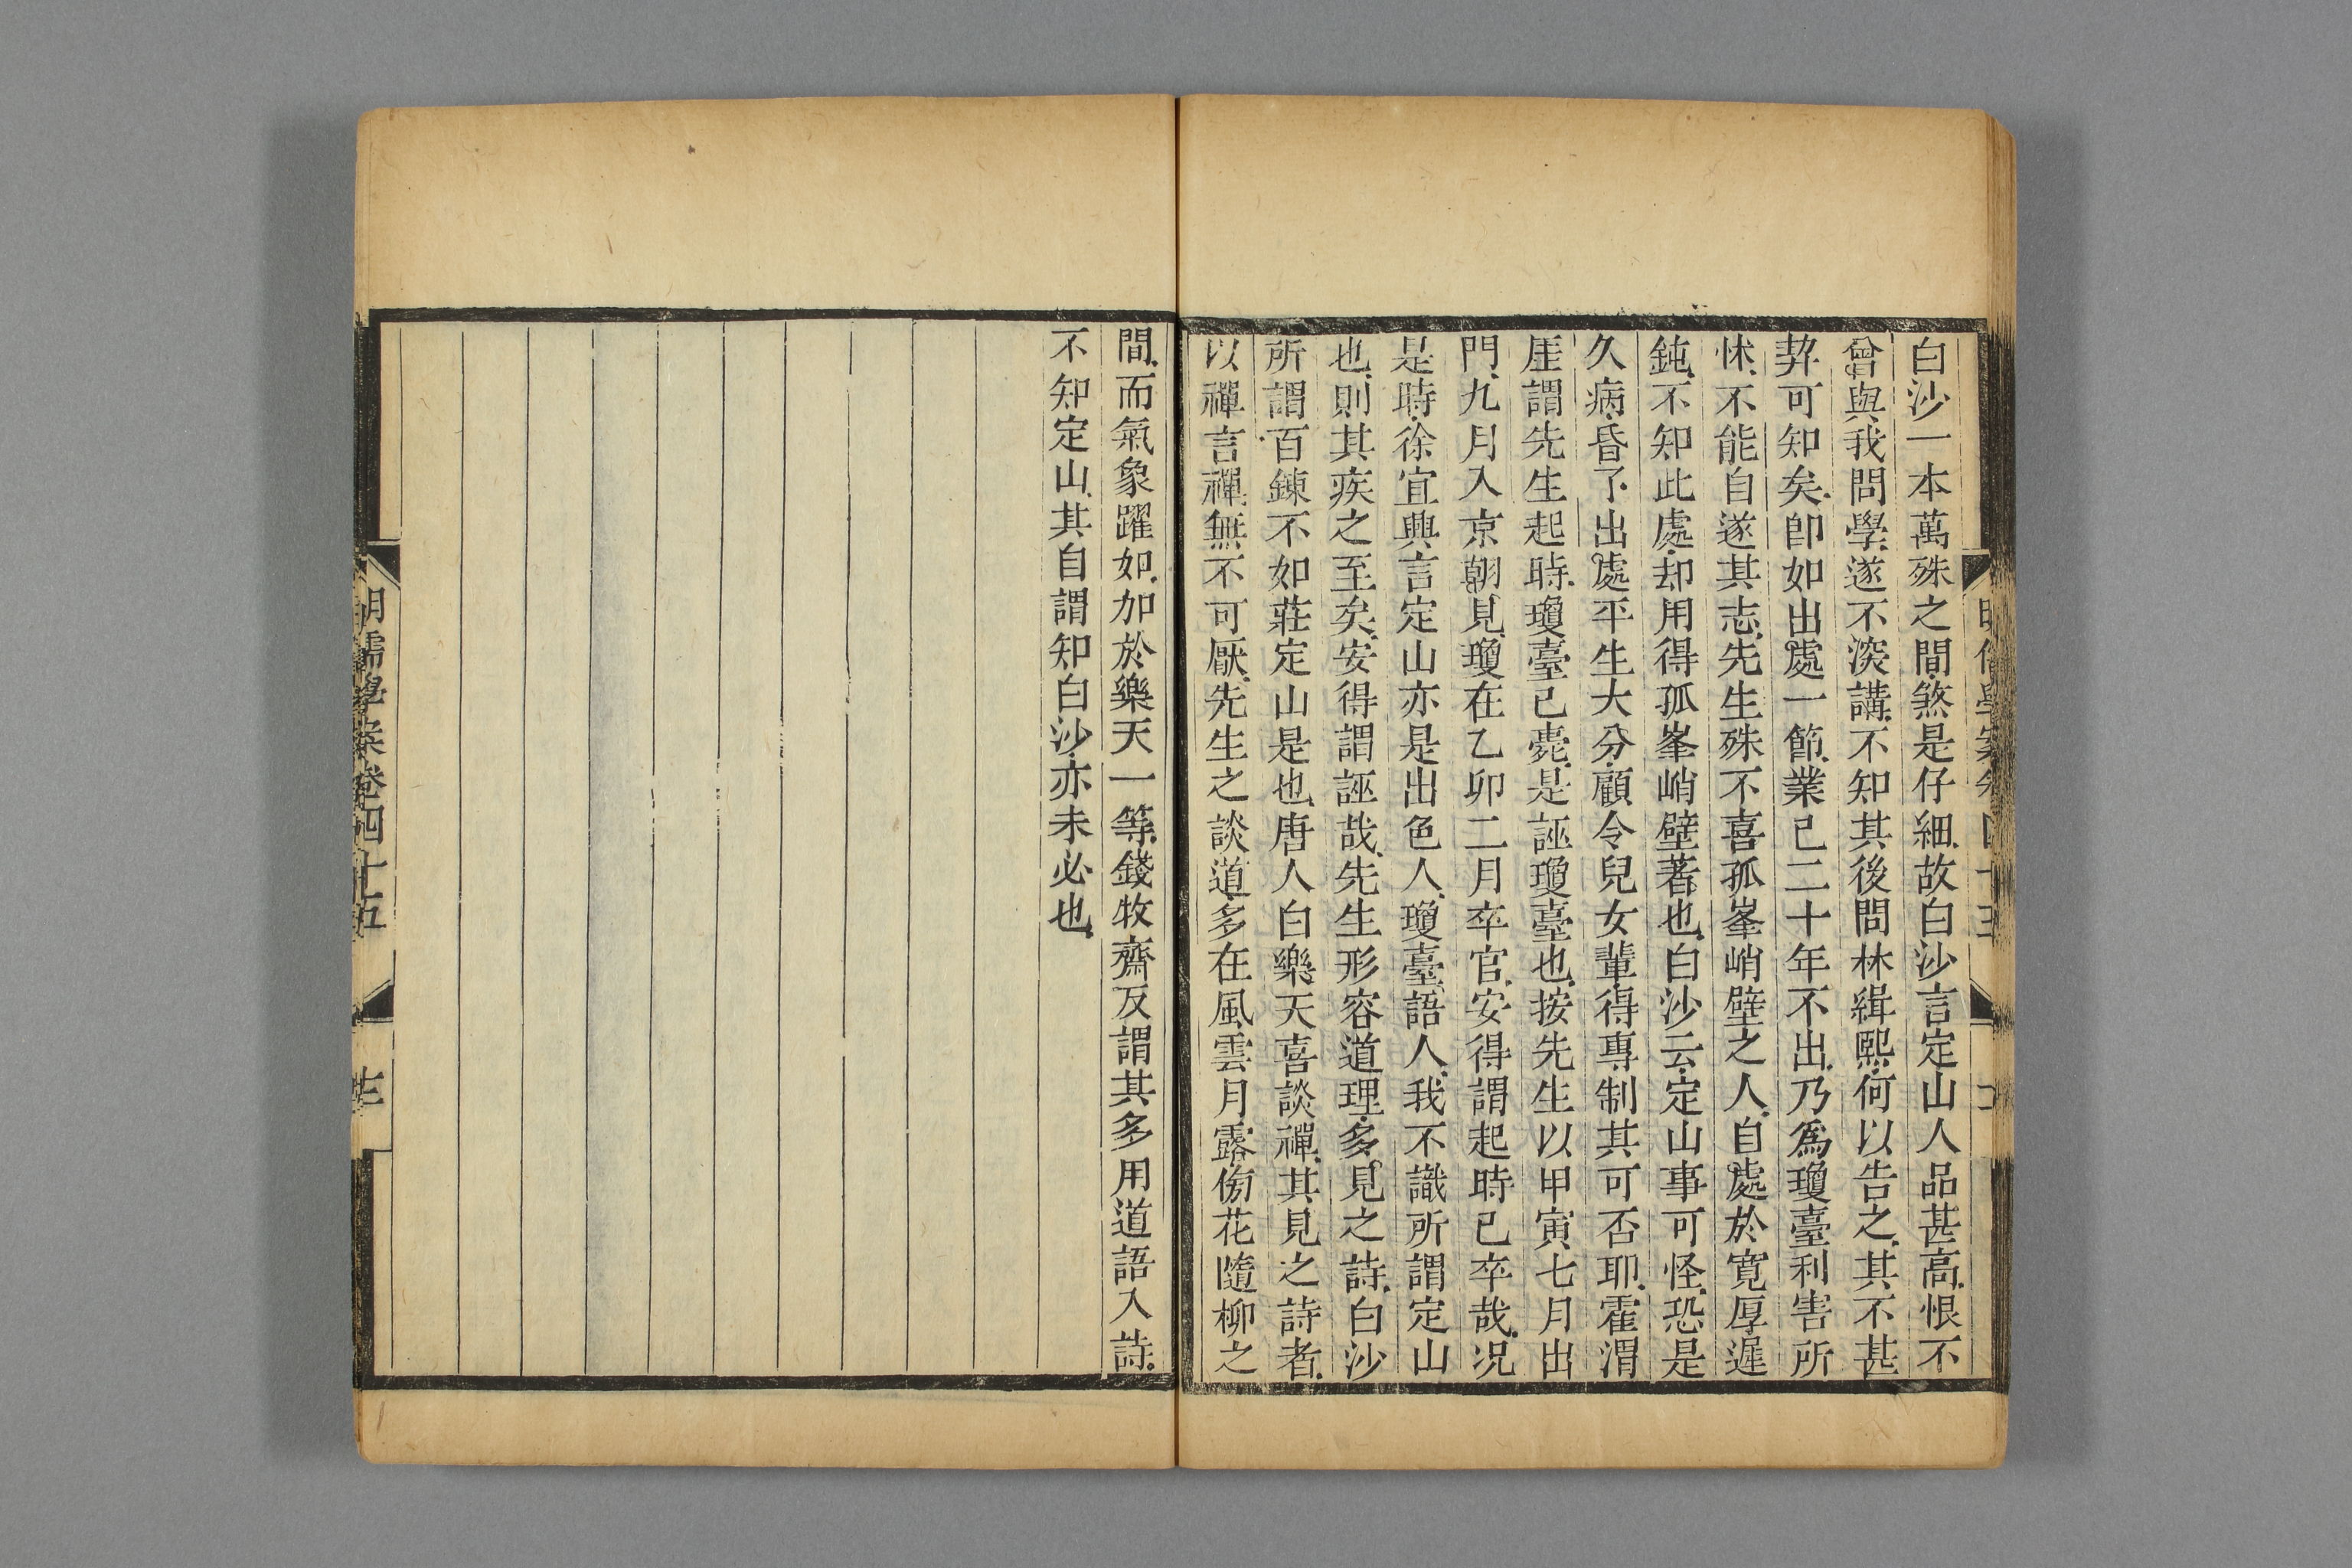 白沙一本萬殊之間煞是仔細故白沙言定山人品甚高恨不
曾與我問學遂不深講不知其後問林緝熙何以告之其不甚
契可知矣卽如出處一節業已二十年不出乃爲瓊臺利害所
怵不能自遂其志先生殊不喜孤峯峭壁之人自處於寬厚遲
鈍不知此處却用得孤峯峭壁著也白沙云定山事可怪恐是
久病昏了出處平生大分顧令兒女輩得專制其可否耶霍渭
厓謂先生起時瓊臺已薨是誣瓊臺也按先生以甲寅七月出
門九月入京朝見瓊在乙卯二月卒官安得謂起時已卒哉况
是時徐宜興言定山亦是出色人瓊臺語人我不識所謂定山
也則其疾之至矣安得謂誣哉先生形容道理多見之詩白沙
所謂百鍊不如莊定山是也唐人白樂天喜談禪其見之詩者
以禪言禪無不可厭先生之談道多在風雲月露傍花隨柳之
間而氣象躍如加於樂天一等錢牧齋反謂其多用道語入詩
不知定山其自謂知白沙亦未必也
明儒學案卷四十五